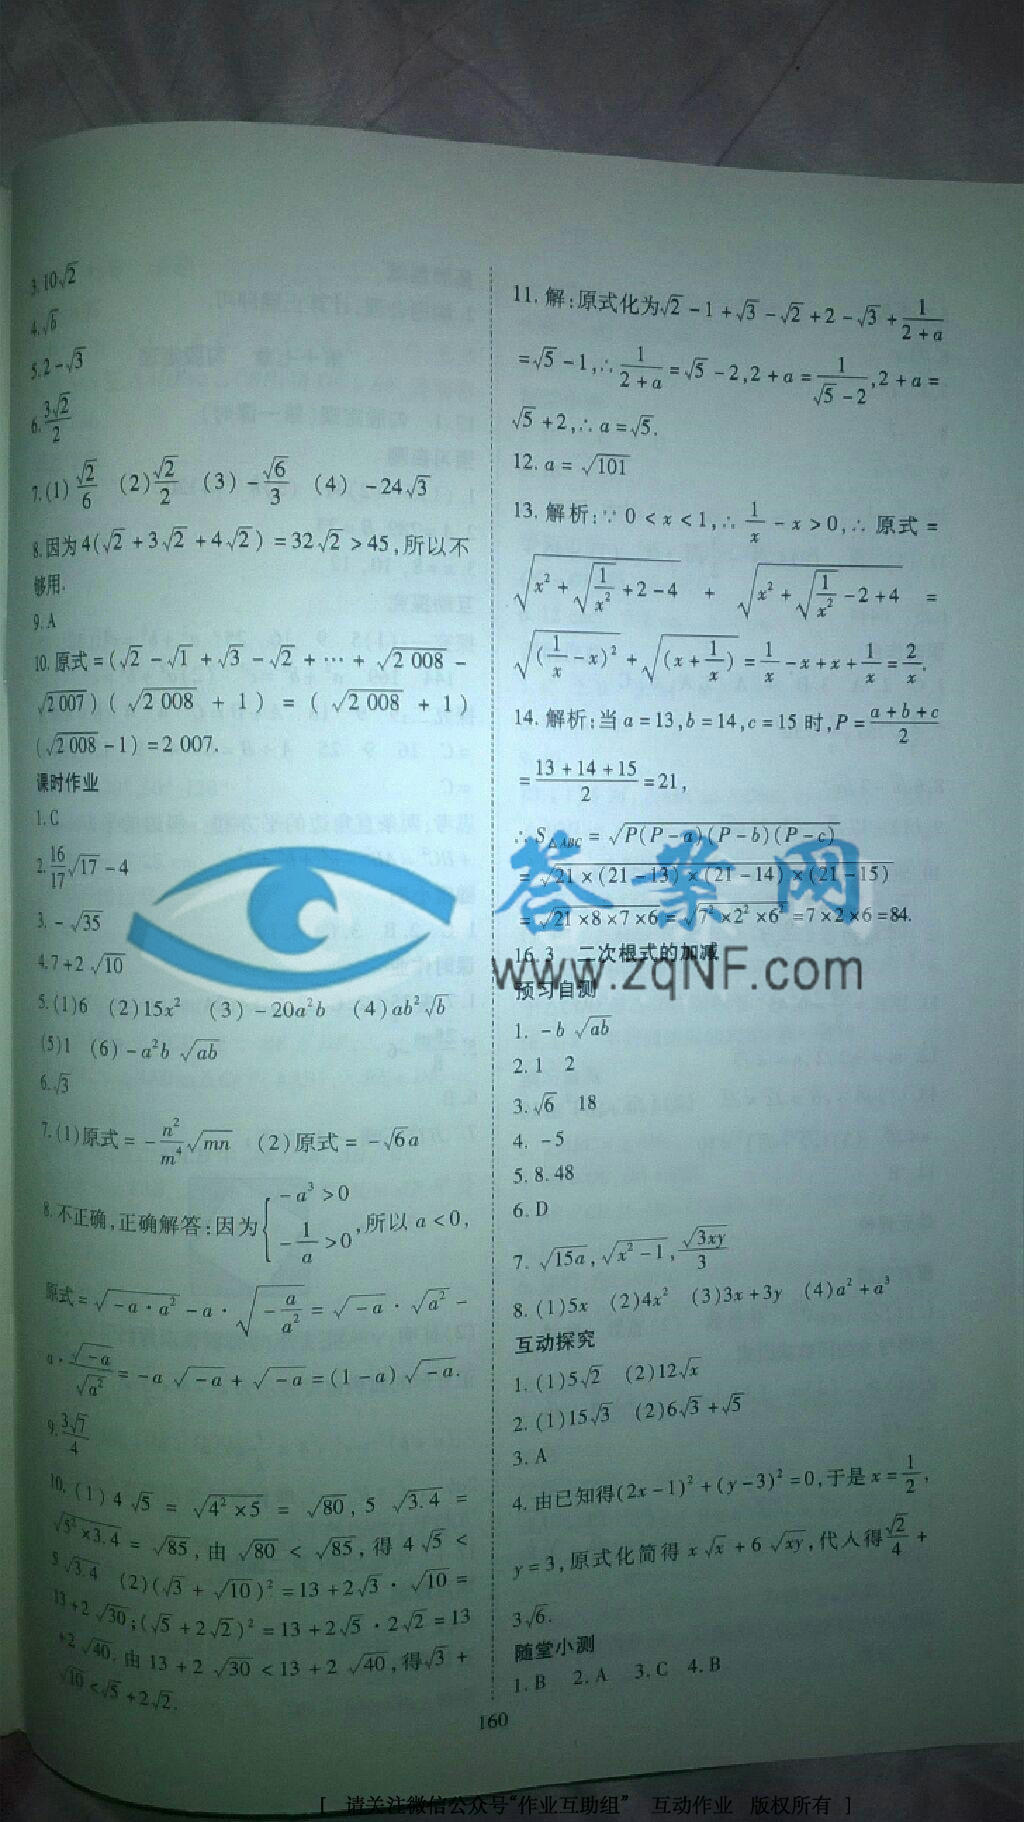 3. 10√2
4. √6
5. 2-√3
6. 3√2/2
7. (1) √2/6 (2) √2/2 (3) -√6/3 (4) -24√3
8. 因为4(√2+3√2+4√2)=32√2>45,所以不
够用.
9. A
10. 原式=(√2-√1+√3-√2+…+√2 008-
√2007)(√2 008+1)=(√2 008+1)
(√2 008-1)=2 007.
课时作业
1. C
2. 16/17√17-4
3. -√35
4. 7+2√10
5. (1)6 (2)15x² (3)-20a²b (4)ab²√b
(5)1 (6)-a²b√ab
6. √3
7. (1)原式=-n²/m⁴√mn (2)原式=-√6a
8. 不正确,正确解答:因为{-a³>0, -1/a>0,所以a<0,
原式=√-a·a²-a·√-a/a²=√-a·√a²-
a·√-a/√a²=-a√-a+√-a=(1-a)√-a.
9. 3√7/4
10. (1)4√5=√4²×5=√80,5√3.4=
√5²×3.4=√85,由√80<√85,得4√5<
5√3.4 (2)(√3+√10)²=13+2√3·√10=
13+2√30;(√5+2√2)²=13+2√5·2√2=13
+2√40.由13+2√30<13+2√40,得√3+
√10<√5+2√2.
11. 解:原式化为√2-1+√3-√2+2-√3+1/(2+a)
=√5-1,∴1/(2+a)=√5-2,2+a=1/(√5-2),2+a=
√5+2,∴a=√5.
12. a=√101
13. 解析:∵0<x<1,∴1/x-x>0,∴原式=
√(x²+√(1/x²)+2-4)+√(x²+√(1/x²)-2+4)=
√(1/x-x)²+√(x+1/x)=1/x-x+x+1/x=2/x.
14. 解析:当a=13,b=14,c=15时,P=(a+b+c)/2
=(13+14+15)/2=21,
∴S△ABC=√P(P-a)(P-b)(P-c)
=√21×(21-13)×(21-14)×(21-15)
=√21×8×7×6=√7²×2²×6²=7×2×6=84.
16.3 二次根式的加减
预习自测
1. -b√ab
2. 1 2
3. √6 18
4. -5
5. 8.48
6. D
7. √15a,√x²-1,√3xy/3
8. (1)5x (2)4x² (3)3x+3y (4)a²+a³
互动探究
1. (1)5√2 (2)12√x
2. (1)15√3 (2)6√3+√5
3. A
4. 由已知得(2x-1)²+(y-3)²=0,于是x=1/2,
y=3,原式化简得x√x+6√xy,代入得√2/4+
3√6.
随堂小测
1. B 2. A 3. C 4. B
160
答案网
www.zqNF.com
[ 请关注微信公众号“作业互助组” 互动作业 版权所有 ]